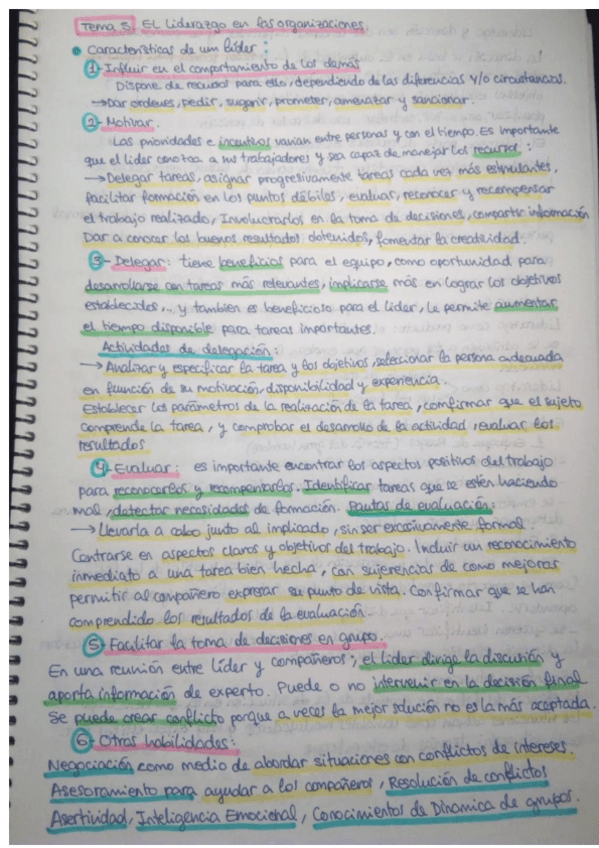 Tema 5: El Liderazgo en las organizaciones.
Características de un líder:
1- Influir en el comportamiento de los demás
Dispone de recursos para ello, dependiendo de las diferencias y/o circustancias.
→ Dar ordenes, pedir, sugerir, prometer, amenazar y sancionar.
2- Motivar.
Las prioridades e incentivos varian entre personas y con el tiempo. Es importante
que el líder conozca a sus trabajadores y sea capaz de manejar los recursos:
→ Delegar tareas, asignar progresivamente tareas cada vez más estimulantes,
facilitar formación en los puntos débiles, evaluar, reconocer y recompensar
el trabajo realizado, Involucrarlos en la toma de decisiones, compartir información
Dar a conocer los buenos resultados obtenidos, fomentar la creatividad.
3- Delegar: tiene beneficios para el equipo, como oportunidad para
desarrollarse con tareas más relevantes, implicarse más en lograr los objetivos
establecidos,.. y tambien es beneficioso para el líder, le permite aumentar
el tiempo disponible para tareas importantes.
Actividades de delegación:
→ Analizar y especificar la tarea y los objetivos, seleccionar la persona adecuada
en función de su motivación, disponibilidad y experiencia.
Establecer los parámetros de la realización de la tarea, comfirmar que el sujeto
comprende la tarea, y comprobar el desarrollo de la actividad, evaluar los
resultados
4- Evaluar: es importante encontrar los aspectos positivos del trabajo
para reconocerlos y recompensarlos. Identificar tareas que se estén haciendo
mal, detectar necesidades de formación. Pautas de evaluación:
→ Llevarla a cabo junto al implicado, sin ser excesivamente formal
Contrarse en aspectos claros y objetivos del trabajo. Incluir un reconocimiento
inmediato a una tarea bien hecha, con sujerencias de como mejorar
permitir al compañero expresar su punto de vista. Confirmar que se han
comprendido los resultados de la evaluación.
5- Facilitar la toma de decisiones en grupo.
En una reunión entre líder y compañeros; el líder dirige la discusión y
aporta información de experto. Puede o no intervenir en la decisión final
Se puede crear conflicto porque a veces la mejor solución no es la más aceptada.
6- Otras habilidades:
Negociación como medio de abordar situaciones con conflictos de intereses.
Asesoramiento para ayudar a los compañeros, Resolución de conflictos
Asertividad, Inteligencia Emocional, Conocimientos de Dinamica de grupos.